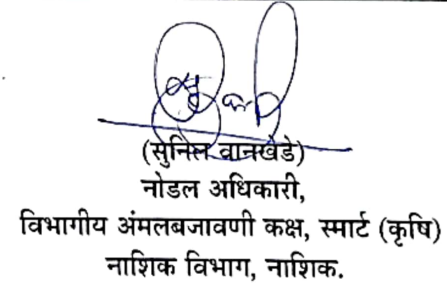 (सुनिल वानखेडे)
नोडल अधिकारी,
विभागीय अंमलबजावणी कक्ष, स्मार्ट (कृषि)
नाशिक विभाग, नाशिक.